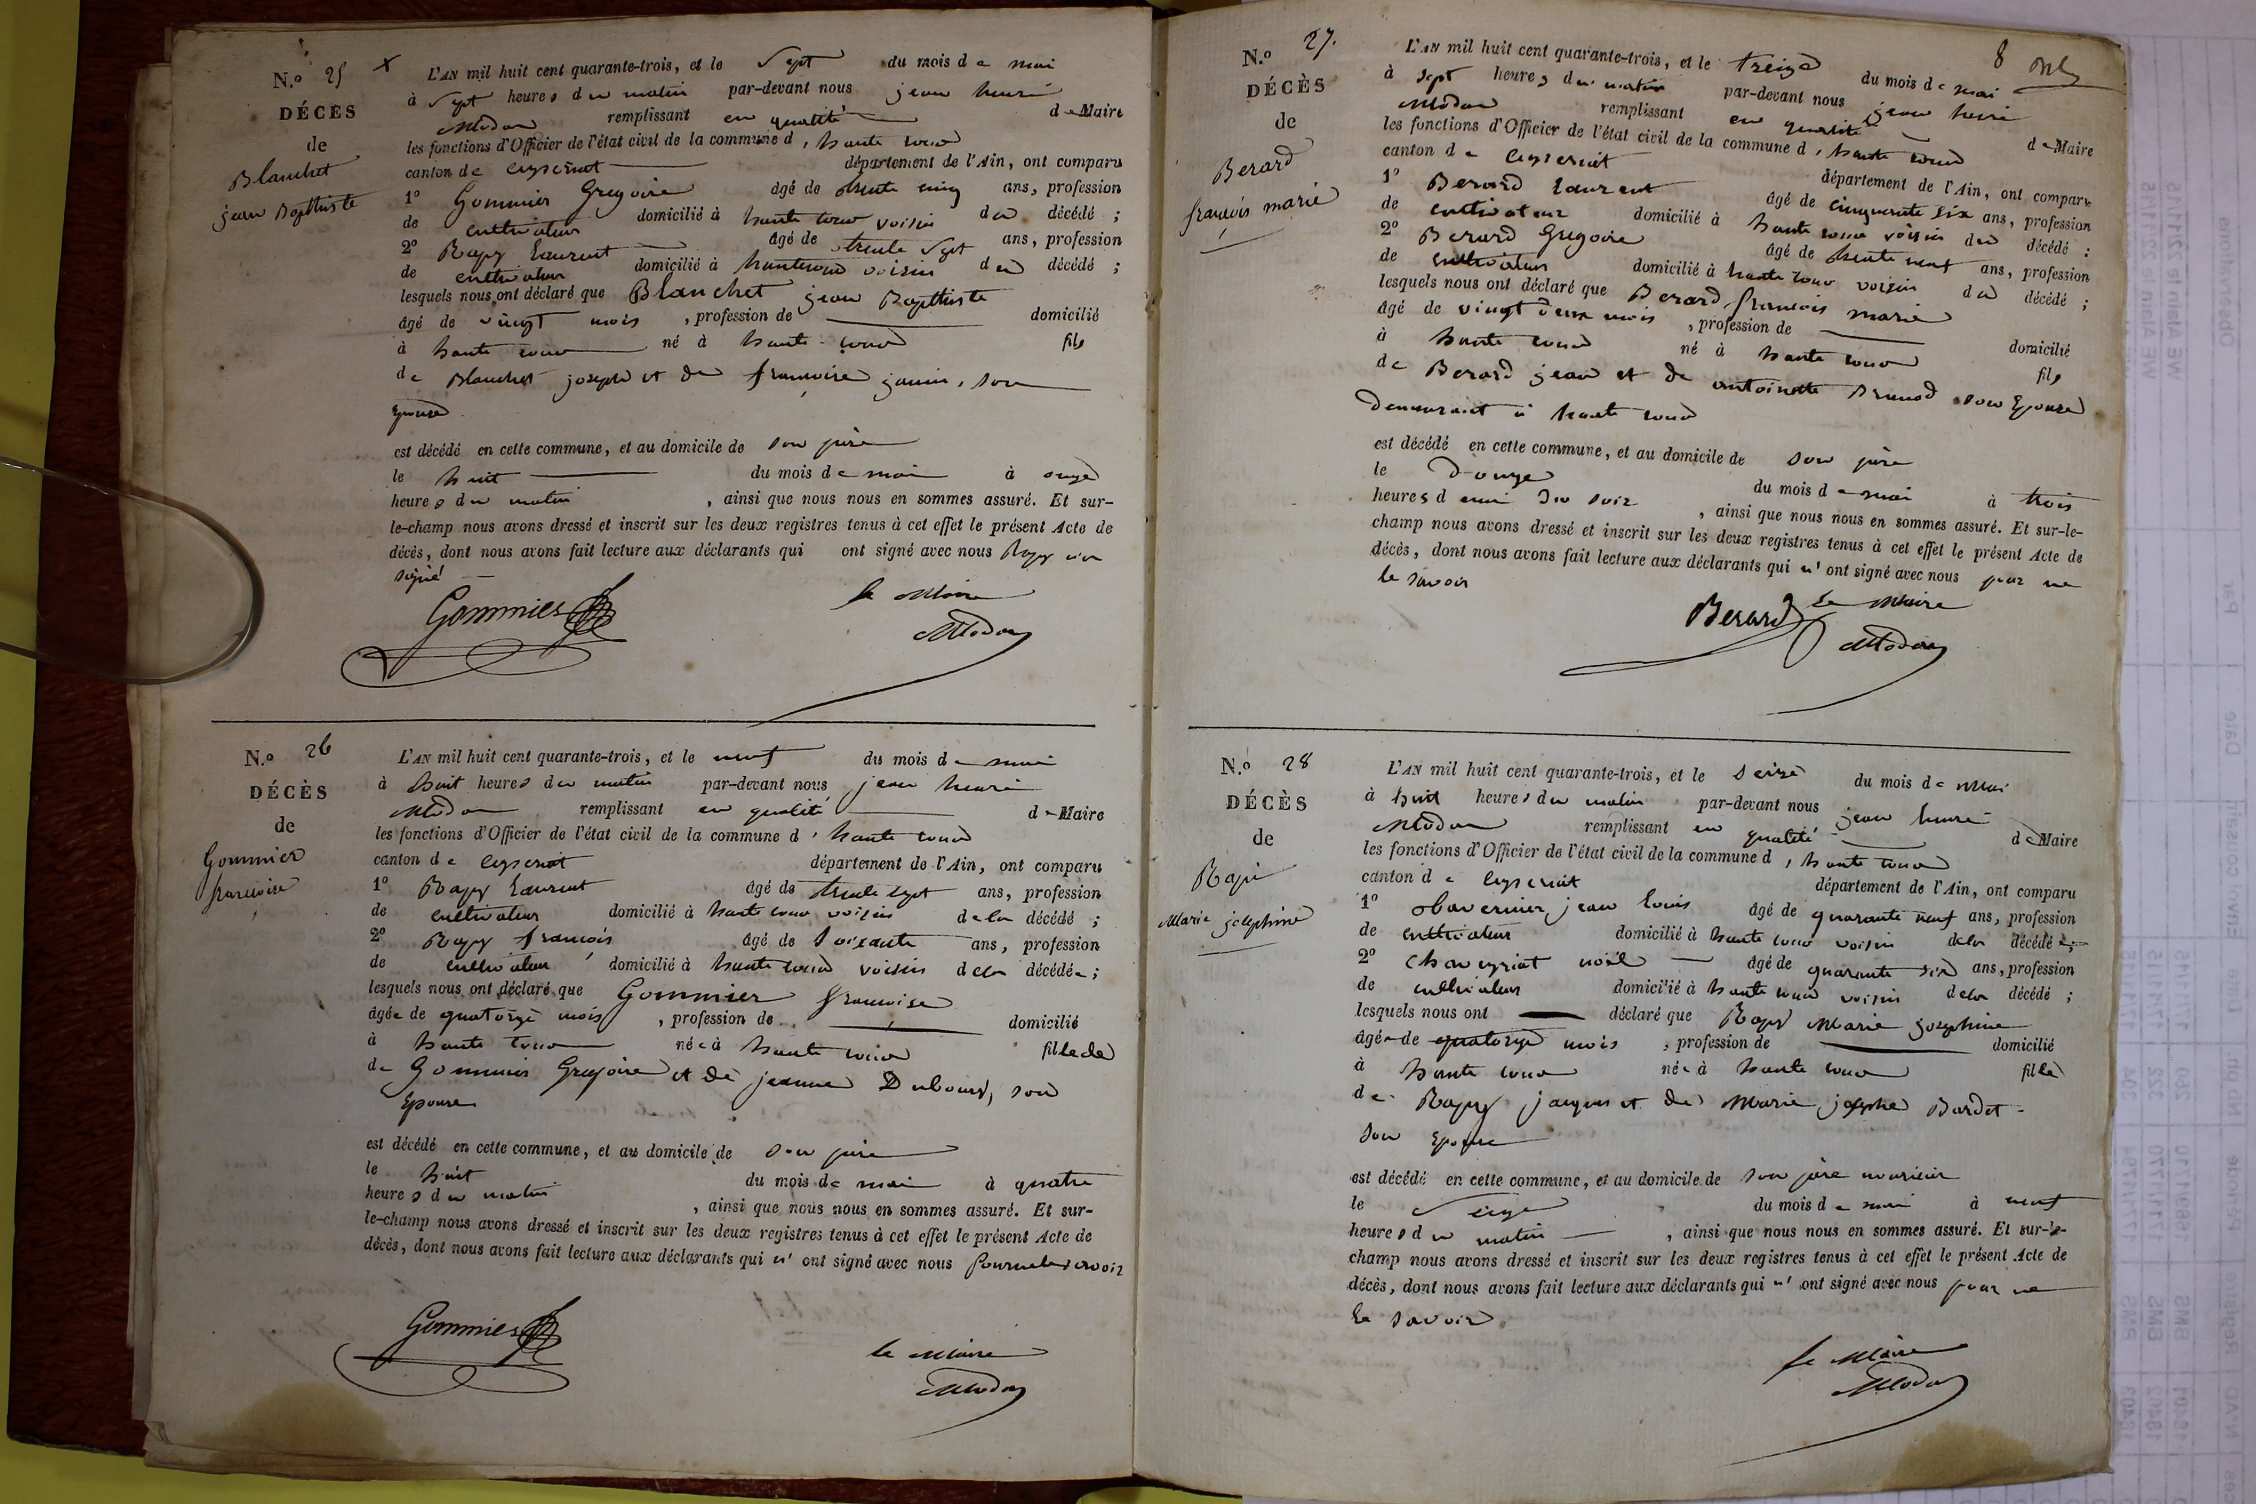 N.° 25
DÉCÈS
de
Blanchet
jean Baptiste
L'AN mil huit cent quarante-trois, et le Sept du mois de mai
à Sept heures du matin par-devant nous jean henri
Modon remplissant en qualité de Maire
les fonctions d'Officier de l'état civil de la commune d' haute cour
canton de ceyseriat département de l'Ain, ont comparu
1° Gommier Gregoire âgé de trente cinq ans, profession
de cultivateur domicilié à haute cour voisin du décédé ;
2° Rapy Laurent âgé de trente Sept ans, profession
de cultivateur domicilié à hautecour voisin du décédé ;
lesquels nous ont déclaré que Blanchet jean Bapthiste
âgé de vingt mois , profession de domicilié
à haute cour né à haute cour fils
de Blanchet joseph et de françoise janin, son
Epouse
est décédé en cette commune, et au domicile de son père
le huit du mois de mai à onze
heures du matin , ainsi que nous nous en sommes assuré. Et sur-
le-champ nous avons dressé et inscrit sur les deux registres tenus à cet effet le présent Acte de
décès, dont nous avons fait lecture aux déclarants qui ont signé avec nous Rapy non
signé
Gommier le Maire
Modon
N.° 26
DÉCÈS
de
Gommier
françoise
L'AN mil huit cent quarante-trois, et le neuf du mois de mai
à huit heures du matin par-devant nous jean henri
Modon remplissant en qualité de Maire
les fonctions d'Officier de l'état civil de la commune d' haute cour
canton de ceyseriat département de l'Ain, ont comparu
1° Rapy Laurent âgé de trente sept ans, profession
de cultivateur domicilié à haute cour voisin de la décédé ;
2° Rapy françois âgé de soixante ans, profession
de cultivateur domicilié à haute cour voisin de la décédée ;
lesquels nous ont déclaré que Gommier françoise
âgée de quatorze mois , profession de domicilié
à haute cour née à haute cour fille de
de Gommier Gregoire et de jeanne Dubourg, son
Epouse
est décédé en cette commune, et au domicile de son père
le huit du mois de mai à quatre
heures du matin , ainsi que nous nous en sommes assuré. Et sur-
le-champ nous avons dressé et inscrit sur les deux registres tenus à cet effet le présent Acte de
décès, dont nous avons fait lecture aux déclarants qui n' ont signé avec nous pour ne le savoir
Gommier
le Maire
Modon
8
N.° 27.
DÉCÈS
de
Berard
françois marie
L'AN mil huit cent quarante-trois, et le treize du mois de mai
à sept heures du matin par-devant nous jean henri
Modon remplissant en qualité de Maire
les fonctions d'Officier de l'état civil de la commune d' haute cour
canton de ceyseriat département de l'Ain, ont comparu
1° Berard Laurent âgé de cinquante six ans, profession
de cultivateur domicilié à haute cour voisin du décédé ;
2° Berard Gregoire âgé de trente neuf ans, profession
de cultivateur domicilié à haute cour voisin du décédé ;
lesquels nous ont déclaré que Berard françois marie
âgé de vingt deux mois , profession de domicilié
à haute cour né à haute cour fils
de Berard jean et de antoinette Brunod son Epouse
demeurant à haute cour
est décédé en cette commune, et au domicile de son père
le Douze du mois de mai à trois
heures d emi du soir , ainsi que nous nous en sommes assuré. Et sur-le-
champ nous avons dressé et inscrit sur les deux registres tenus à cet effet le présent Acte de
décès, dont nous avons fait lecture aux déclarants qui n' ont signé avec nous pour ne
le savoir
Berard le Maire
Modon
N.° 28
DÉCÈS
de
Rapi
Marie josephine
L'AN mil huit cent quarante-trois, et le seize du mois de Mai
à huit heures du matin par-devant nous jean henri
Modon remplissant en qualité de Maire
les fonctions d'Officier de l'état civil de la commune d' haute cour
canton de ceyseriat département de l'Ain, ont comparu
1° jean louis âgé de quarante neuf ans, profession
de cultivateur domicilié à haute cour voisin de la décédée ;
2° Chaveyriat noël âgé de quarante six ans, profession
de cultivateur domicilié à haute cour voisin de la décédé ;
lesquels nous ont déclaré que Rapy Marie josephine
âgée de quatorze mois , profession de domicilié
à haute cour née à haute cour fille
de Rapy jacques et de Marie josephe Bardet
son Epouse
est décédé en cette commune, et au domicile de son père nouricier
le Seize du mois de mai à neuf
heures du matin , ainsi que nous nous en sommes assuré. Et sur-le-
champ nous avons dressé et inscrit sur les deux registres tenus à cet effet le présent Acte de
décès, dont nous avons fait lecture aux déclarants qui n' ont signé avec nous pour ne
le savoir
le Maire
Modon